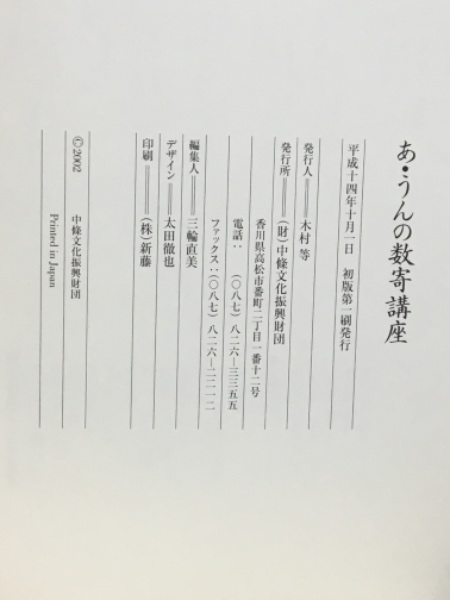 あ・うんの数寄講座
平成十四年十月一日　初版第一刷発行
発行人＝＝＝木村 等
発行所＝＝＝（財）中條文化振興財団
香川県高松市番町二丁目一番十二号
電話：　（〇八七）八二六―三三五五
ファックス：（〇八七）八二六―二二一二
編集人＝＝＝三輪直美
デザイン＝＝＝太田徹也
印刷＝＝＝（株）新藤
©2002　中條文化振興財団
Printed in Japan